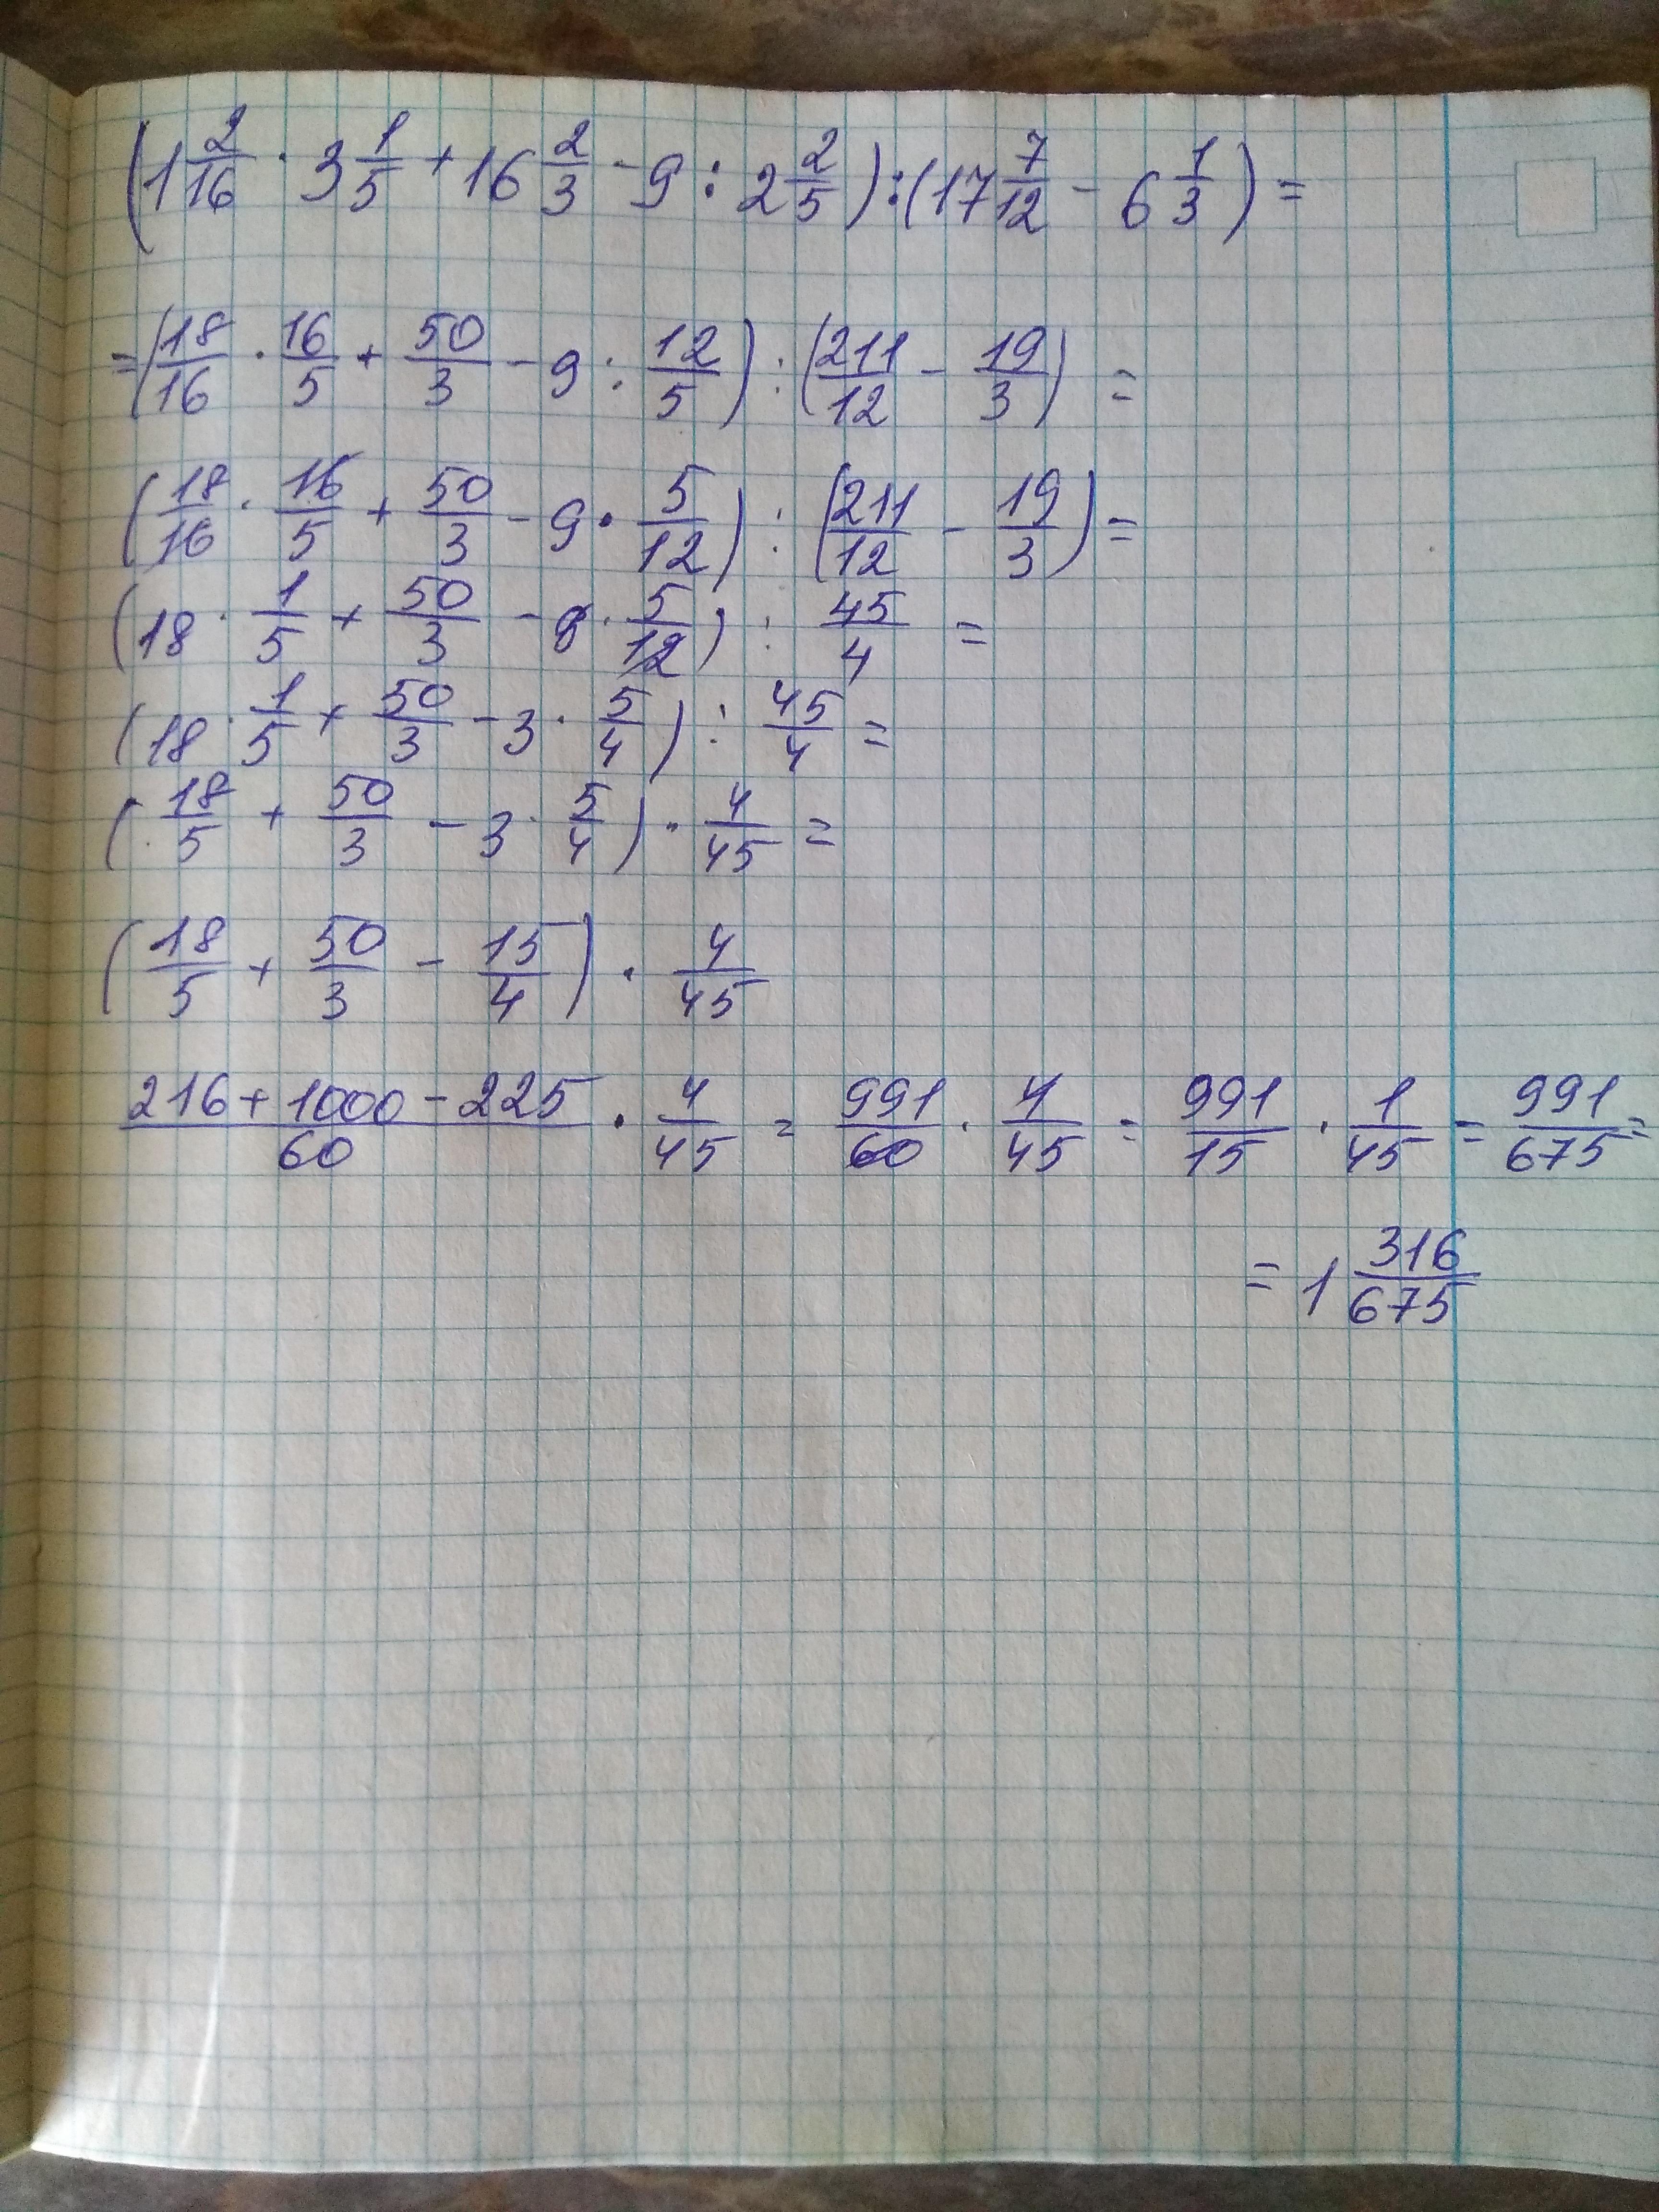 (1 2/16 · 3 1/5 + 16 2/3 - 9 : 2 2/5) : (17 7/12 - 6 1/3) =
= (18/16 · 16/5 + 50/3 - 9 : 12/5) : (211/12 - 19/3) =
(18/16 · 16/5 + 50/3 - 9 · 5/12) : (211/12 - 19/3) =
(18 · 1/5 + 50/3 - 9 · 5/12) : 45/4 =
(18 · 1/5 + 50/3 - 3 · 5/4) : 45/4 =
(18/5 + 50/3 - 3 · 5/4) · 4/45 =
(18/5 + 50/3 - 15/4) · 4/45
(216 + 1000 - 225)/60 · 4/45 = 991/60 · 4/45 = 991/15 · 1/45 = 991/675 =
= 1 316/675